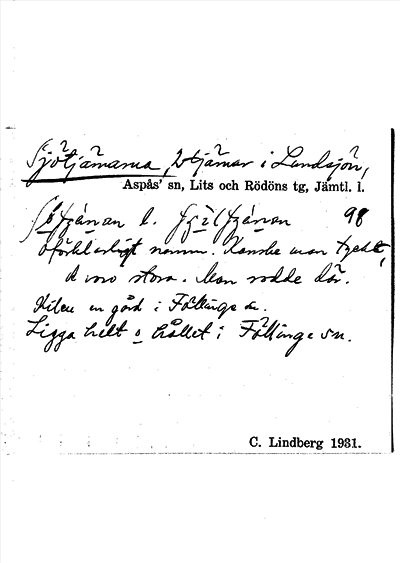 Sjötjämarna, 2 tjärnar i Landsjön,
Aspås' sn, Lits och Rödöns tg, Jämtl. l.
l. 98
Oförklarligt namn. Kanske man tyckte,
d voro stora. Man rodde där.
Kilen en gård i Föllinge sn.
Ligga helt o hållet i Föllinge sn.
C. Lindberg 1931.